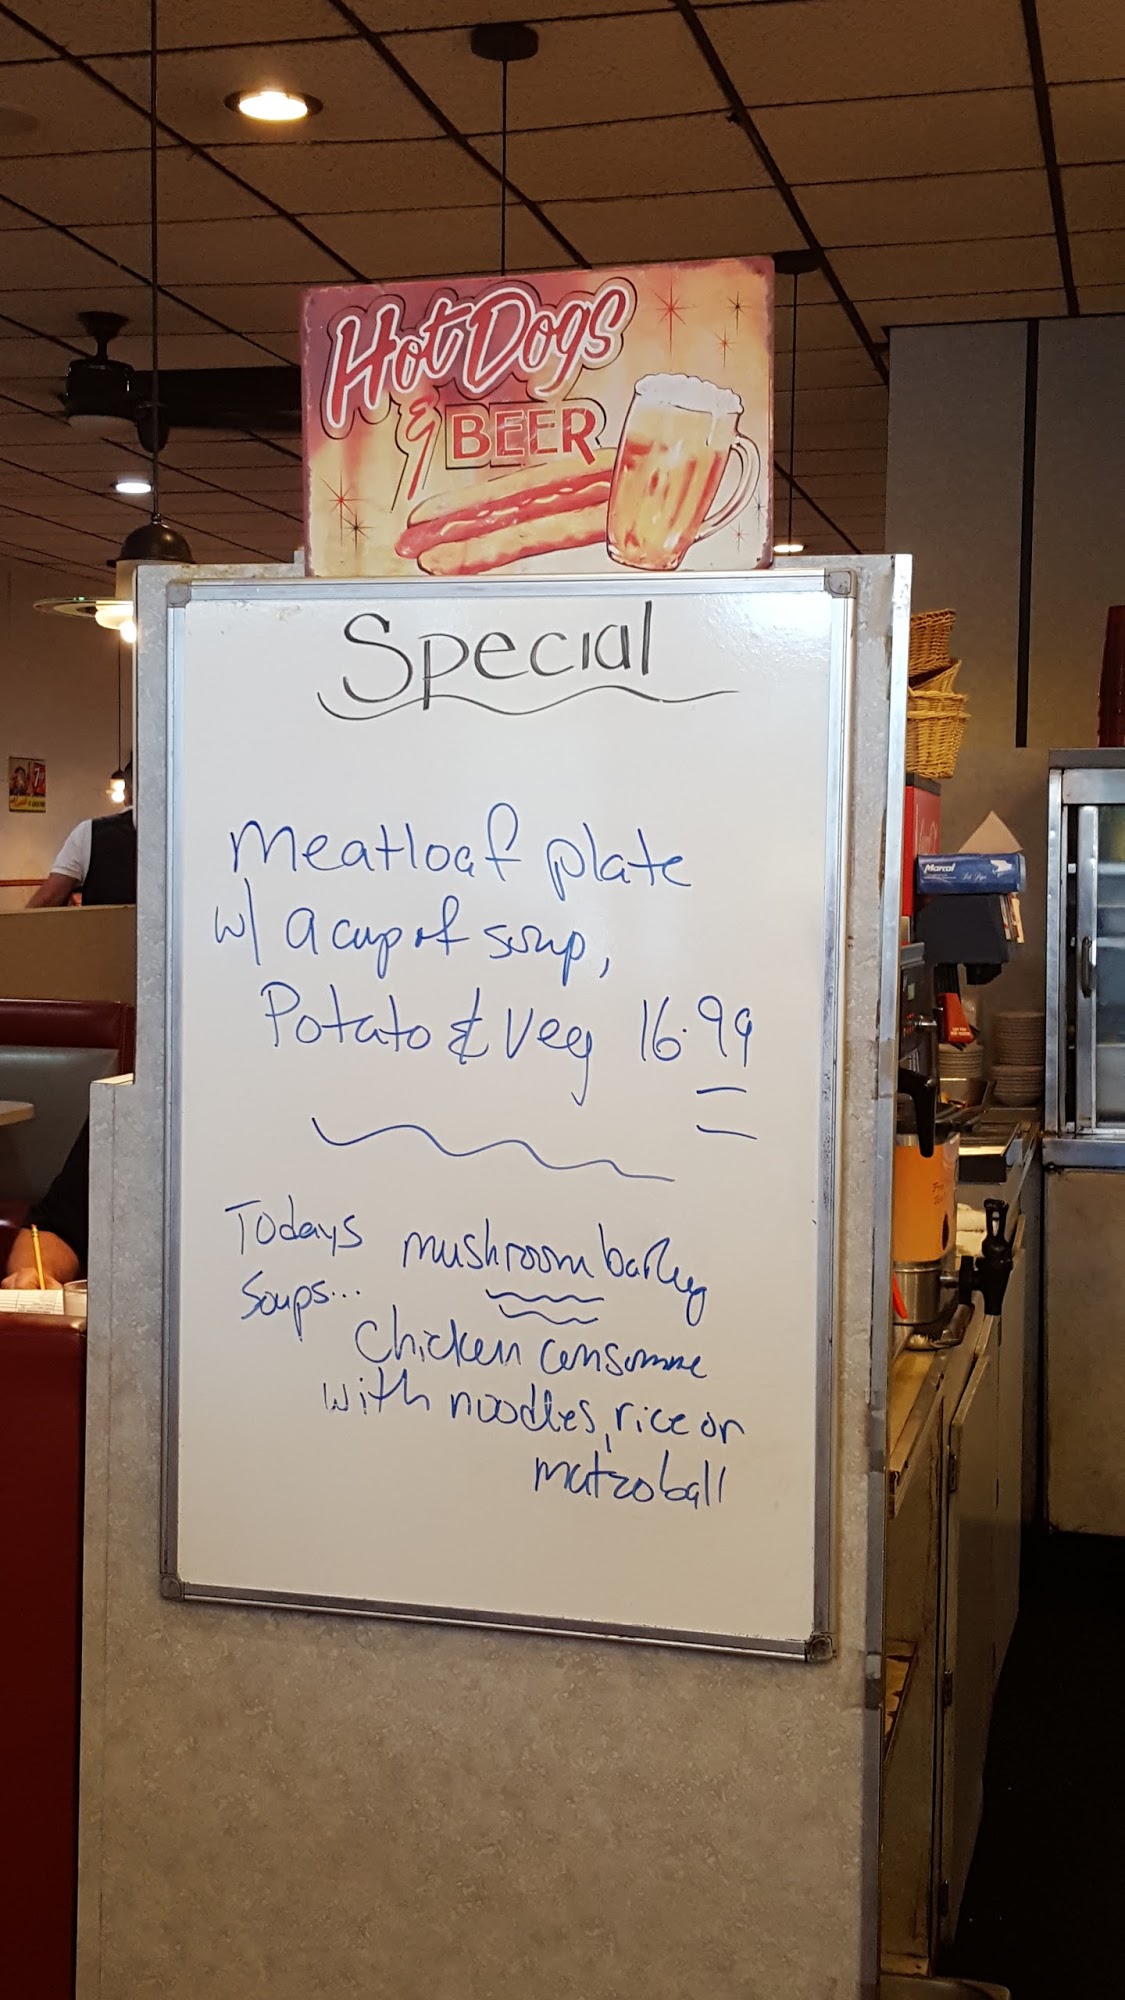 Hot Dogs
& BEER
Special
Meatloaf plate
w/ a cup of soup,
Potato & Veg 16.99
Todays
Soups...
mushroom barley
Chicken consomme
with noodles, rice or
matzoball
Marcal